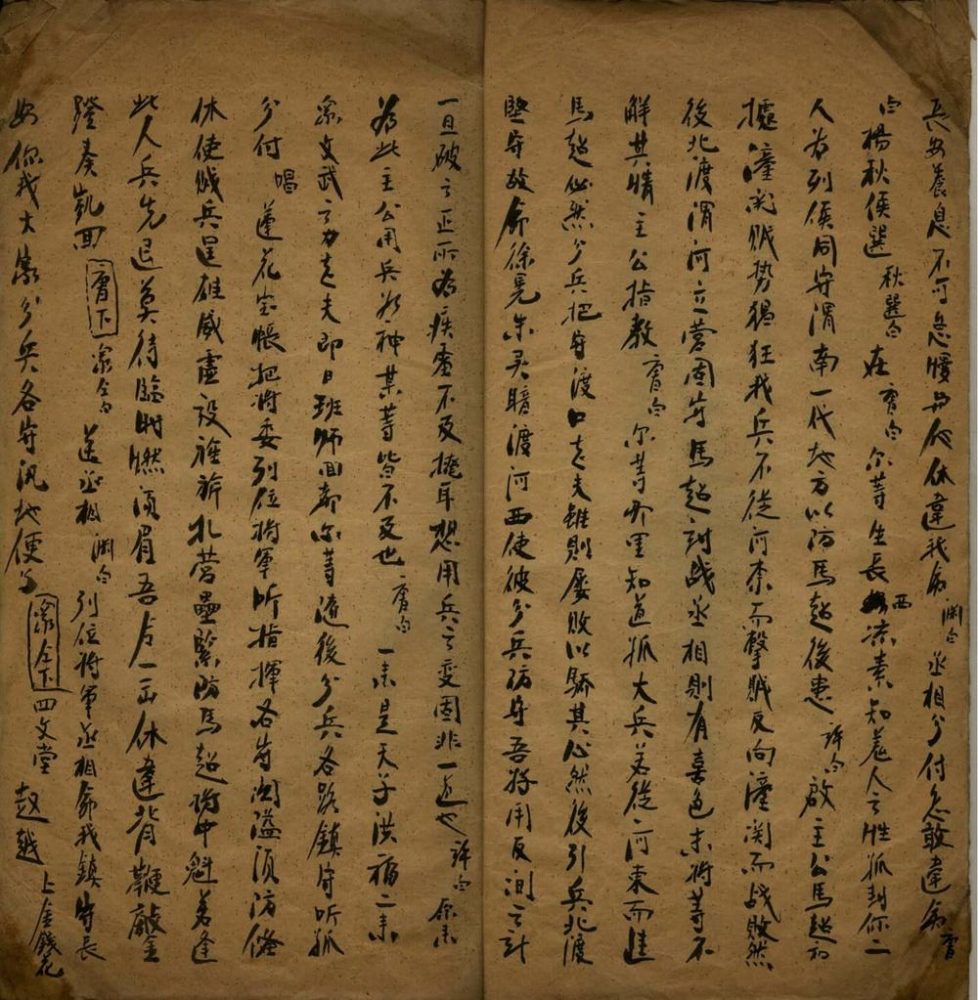 長安養息不可怠慢與他休違我命 淵白 丞相分付怎敢違命 曹
白 楊秋侯選 秋選白 在 曹白 尔等生長西涼素知羗人之性孤封你二
人為列侯同守渭南一代地方以防馬超後患 許白 啟主公馬超初
據潼関賊势猖狂我兵不從河東而擊賊反向潼関而战敗然
後北渡渭河立營固守馬超討战丞相則有喜色末將等不
觧其情主公指教 曹白 尔等那里知道孤大兵若從河東而進
馬超必然分兵把守渡口老夫雖則屡敗以驕其心然後引兵北渡
堅守故命徐晃朱灵暗渡河西使彼分兵防守吾將用反间之計
一旦破之正所為疾雷不及掩耳想用兵之变固非一道也 許白 原来
為此主公用兵如神某等皆不及也 曹白 一来是天子洪福二来
衆文武之力老夫即日班师回都尔等遺後分兵各路鎮守听孤
分付 唱 蓮花宝帳把將委列位將軍听指揮各守関隘須防俻
休使贼兵逞雄威虚設旌旂扎营壘緊防馬超謀中魁若逢
此人兵先退莫待臨时燃须眉吾占一函休違背鞭敲金
鐙奏凱回 曹下 衆仝白 送丞相 淵白 列位將軍丞相命我鎮守長
安你我大家分兵各守汛地便了 衆仝下 四文堂 趙越 上金錢花